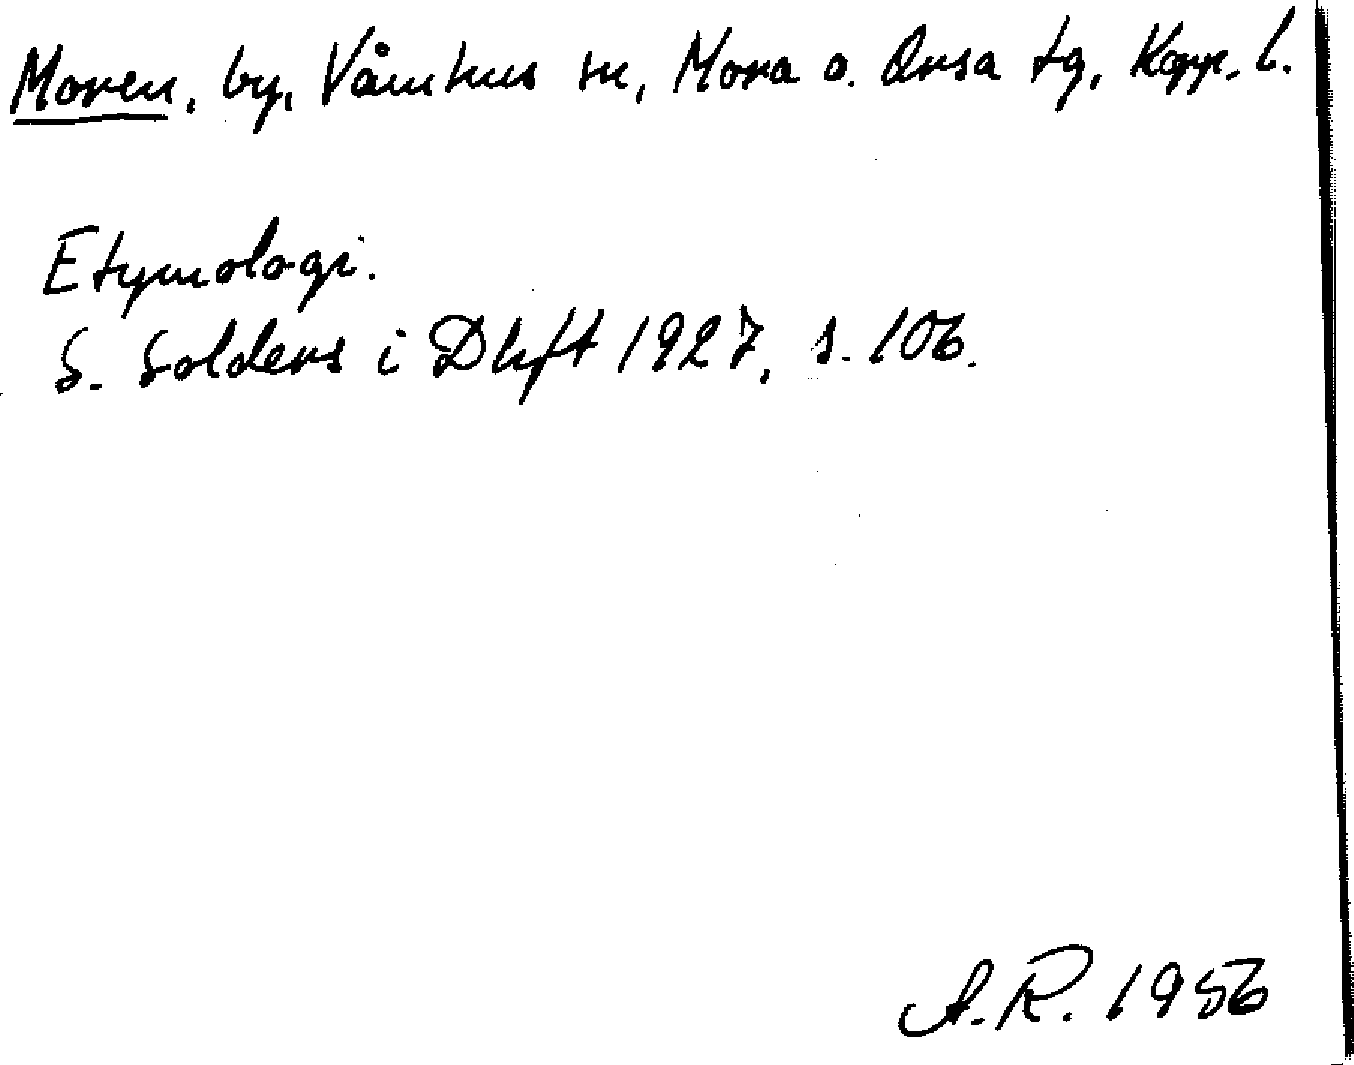 Moren, by, Våmhus sn, Mora o. Orsa tg, Kopp. l.
Etymologi.
S. Solders i Dhft 1927, s. 106.
A.R. 1956